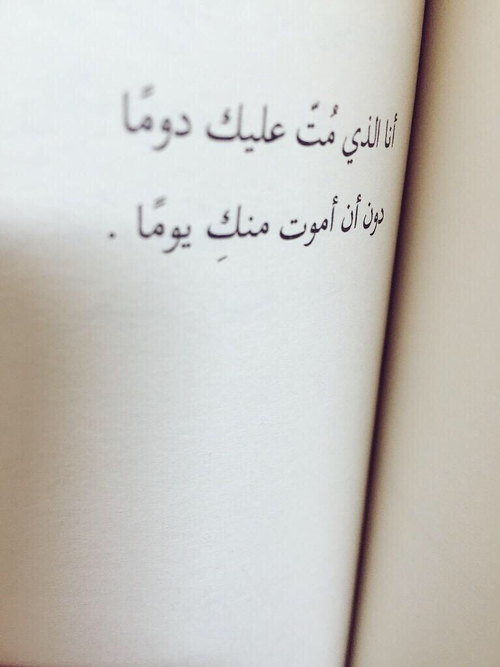 أنا الذي مُتّ عليك دومًا
دون أن أموت منكِ يومًا .